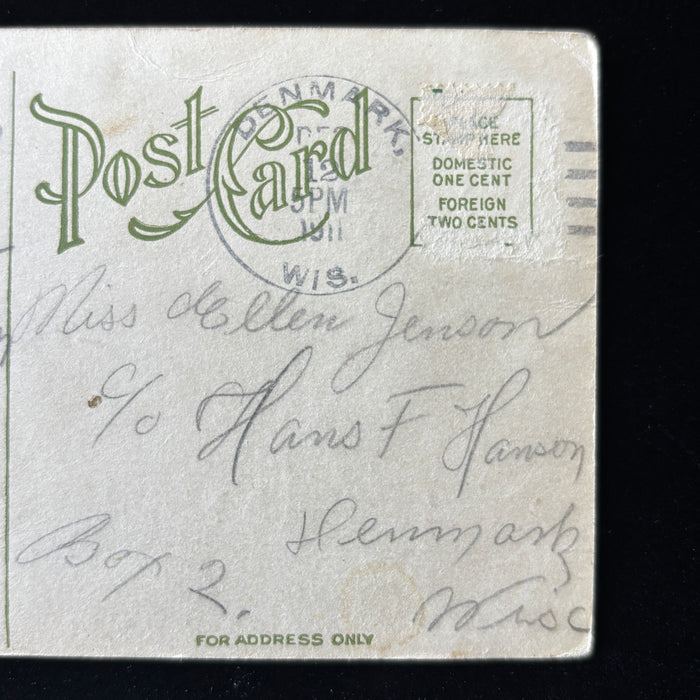 Post Card
DENMARK,
DEC
12
5PM
1911
WIS.
STAMP HERE
DOMESTIC
ONE CENT
FOREIGN
TWO CENTS
Miss Ellen Jenson
c/o Hans F Hanson
Denmark
Box 2.
Wisc
FOR ADDRESS ONLY